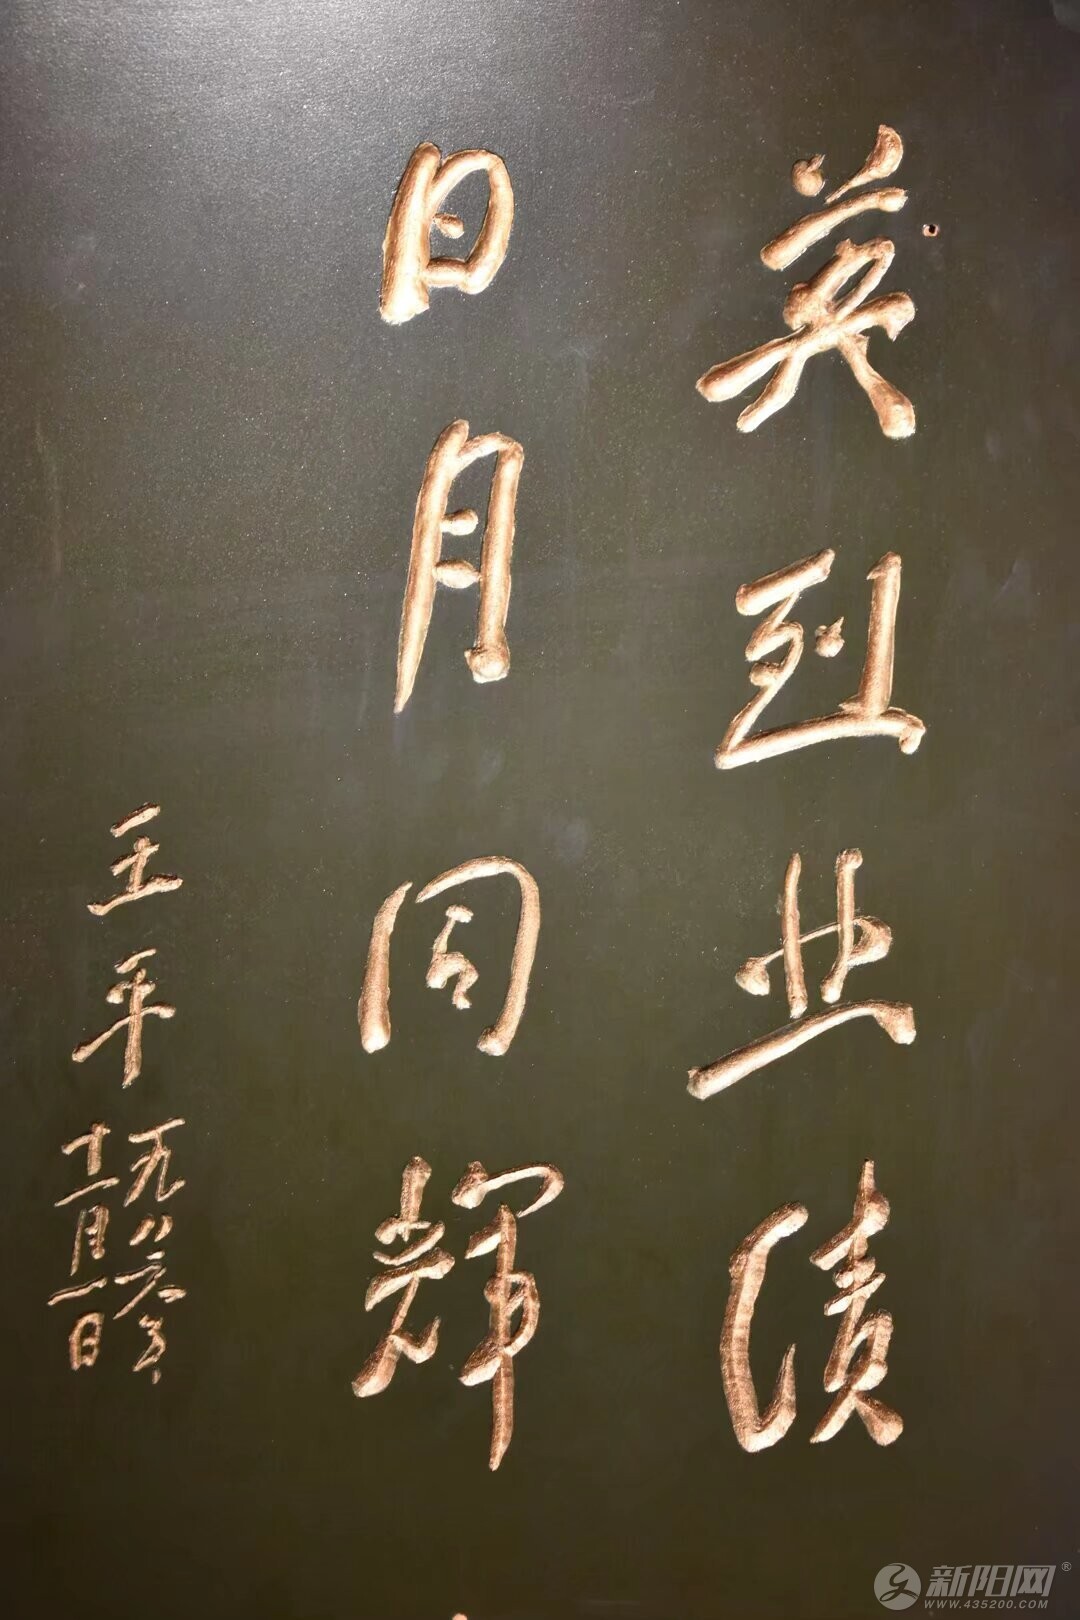 英烈业绩
日月同辉
王平
一九八六年
十一月一日
新阳网®
WWW.435200.COM